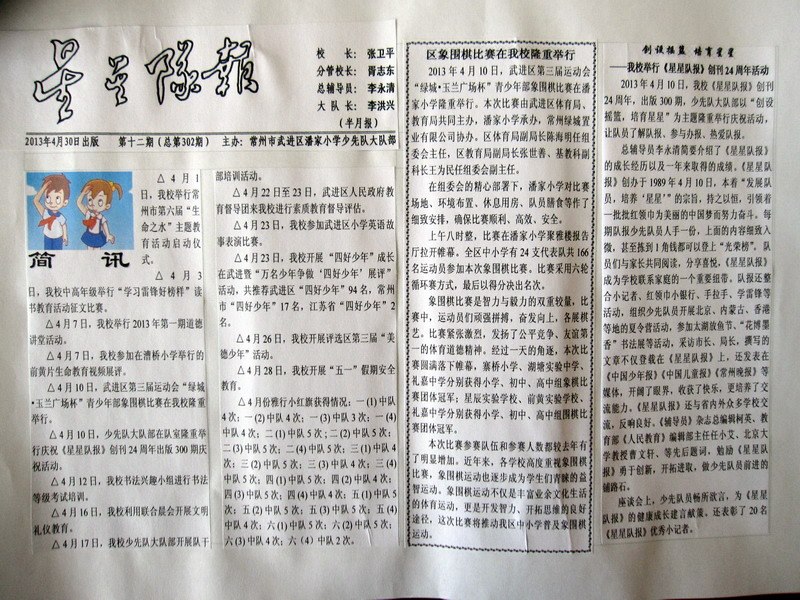 星星隊報
校 长：张卫平
分管校长：胥志东
总辅导员：李永清
大 队 长：李洪兴
（半月报）
2013年4月30日出版 第十二期（总第302期） 主办：常州市武进区潘家小学少先队大队部
简 讯
△4月1
日，我校举行常
州市第六届“生
命之水”主题教
育活动启动仪
式。
△4月3
日，我校中高年级举行“学习雷锋好榜样”读
书教育活动征文比赛。
△4月7日，我校举行2013年第一期道德
讲堂活动。
△4月7日，我校参加在漕桥小学举行的
前黄片生命教育视频展评。
△4月10日，武进区第三届运动会“绿城
•玉兰广场杯”青少年部象围棋比赛在我校隆重
举行。
△4月10日，少先队大队部在队室隆重举
行庆祝《星星队报》创刊24周年出版300期庆
祝活动。
△4月12日，我校书法兴趣小组进行书法
等级考试培训。
△4月16日，我校利用联合晨会开展文明
礼仪教育。
△4月17日，我校少先队大队部开展队干
部培训活动。
△4月22日至23日，武进区人民政府教
育督导团来我校进行素质教育督导评估。
△4月23日，我校参加武进区小学英语故
事表演比赛。
△4月23日，我校开展“四好少年”成长
在武进暨“万名少年争做‘四好少年’展评”活
动，共推荐武进区“四好少年”94名，常州
市“四好少年”17名，江苏省“四好少年”2
名。
△4月26日，我校开展评选区第三届“美
德少年”活动。
△4月28日，我校开展“五一”假期安全
教育。
△4月份雅行小红旗获得情况：一(1)中队
4次；一(2)中队4次；一(3)中队3次；一(4)
中队4次；二(1)中队5次；二(2)中队5次；
二(3)中队5次；二(4)中队5次；三(1)中队
4次；三(2)中队5次；三(3)中队4次；三(4)
中队5次；四(1)中队5次；四(2)中队5次；
四(3)中队5次；四(4)中队4次；五(1)中队5
次；五(2)中队4次；五(3)中队5次；五(4)
中队4次；六(1)中队5次；六(2)中队5次；六
(3)中队4次；六（4）中队2次。
区象围棋比赛在我校隆重举行
2013年4月10日，武进区第三届运动会
“绿城•玉兰广场杯”青少年部象围棋比赛在潘
家小学隆重举行。本次比赛由武进区体育局、
教育局共同主办，潘家小学承办，常州绿城置
业有限公司协办。区体育局副局长陈海明任组
委会主任，区教育局副局长张世善、基教科副
科长王为民任组委会副主任。
在组委会的精心部署下，潘家小学对比赛
场地、环境布置、休息用房、队员膳食等作了
细致安排，确保比赛顺利、高效、安全。
上午八时整，比赛在潘家小学聚雅楼报告
厅拉开帷幕。全区中小学有24支代表队共166
名运动员参加本次象围棋比赛。比赛采用六轮
循环赛方式，最后以得分决出名次。
象围棋比赛是智力与毅力的双重较量，比
赛中，运动员们顽强拼搏，奋发向上，各展棋
艺。比赛紧张激烈，发扬了公平竞争、友谊第
一的体育道德精神。经过一天的角逐，本次比
赛圆满落下帷幕，寨桥小学、湖塘实验中学、
礼嘉中学分别获得小学、初中、高中组象棋比
赛团体冠军；星辰实验学校、前黄实验学校、
礼嘉中学分别获得小学、初中、高中组围棋比
赛团体冠军。
本次比赛参赛队伍和参赛人数都较去年有
了明显增加。近年来，各学校高度重视象围棋
比赛，象围棋运动也逐步成为学生们青睐的益
智运动。象围棋运动不仅是丰富业余文化生活
的体育运动，更是开发智力、开拓思维的良好
途径，这次比赛将推动我区中小学普及象围棋
运动。
创设摇篮 培育星星
——我校举行《星星队报》创刊24周年活动
2013年4月10日，我校《星星队报》创刊
24周年，出版300期，少先队大队部以“创设
摇篮，培育星星”为主题隆重举行庆祝活动，
让队员了解队报、参与办报、热爱队报。
总辅导员李永清简要介绍了《星星队报》
的成长经历以及一年来取得的成绩。《星星队
报》创办于1989年4月10日，本着“发展队
员，培养‘星星’”的宗旨，持之以恒，引领着
一批批红领巾为美丽的中国梦而努力奋斗。每
期队报少先队员人手一份，上面的内容细致入
微，甚至拣到1角钱都可以登上“光荣榜”。队
员们与家长共同阅读，分享喜悦，《星星队报》
成为学校联系家庭的一个重要纽带。队报还整
合小记者、红领巾小银行、手拉手、学雷锋等
活动，组织少先队员开展北京、内蒙古、香港
等地的夏令营活动，参加太湖放鱼节、“花博墨
香”书法展等活动，采访市长、局长，撰写的
文章不仅登载在《星星队报》上，还发表在
《中国少年报》《中国儿童报》《常州晚报》等
媒体，开阔了眼界，收获了快乐，更培养了交
流能力。《星星队报》还与省内外众多学校交
流，反响良好。《辅导员》杂志总编辑柯英、教
育部《人民教育》编辑部主任任小艾、北京大
学教授曹文轩、等先后题词，勉励《星星队
报》勇于创新，开拓进取，做少先队员前进的
铺路石。
座谈会上，少先队员畅所欲言，为《星星
队报》的健康成长建言献策。还表彰了20名
《星星队报》优秀小记者。